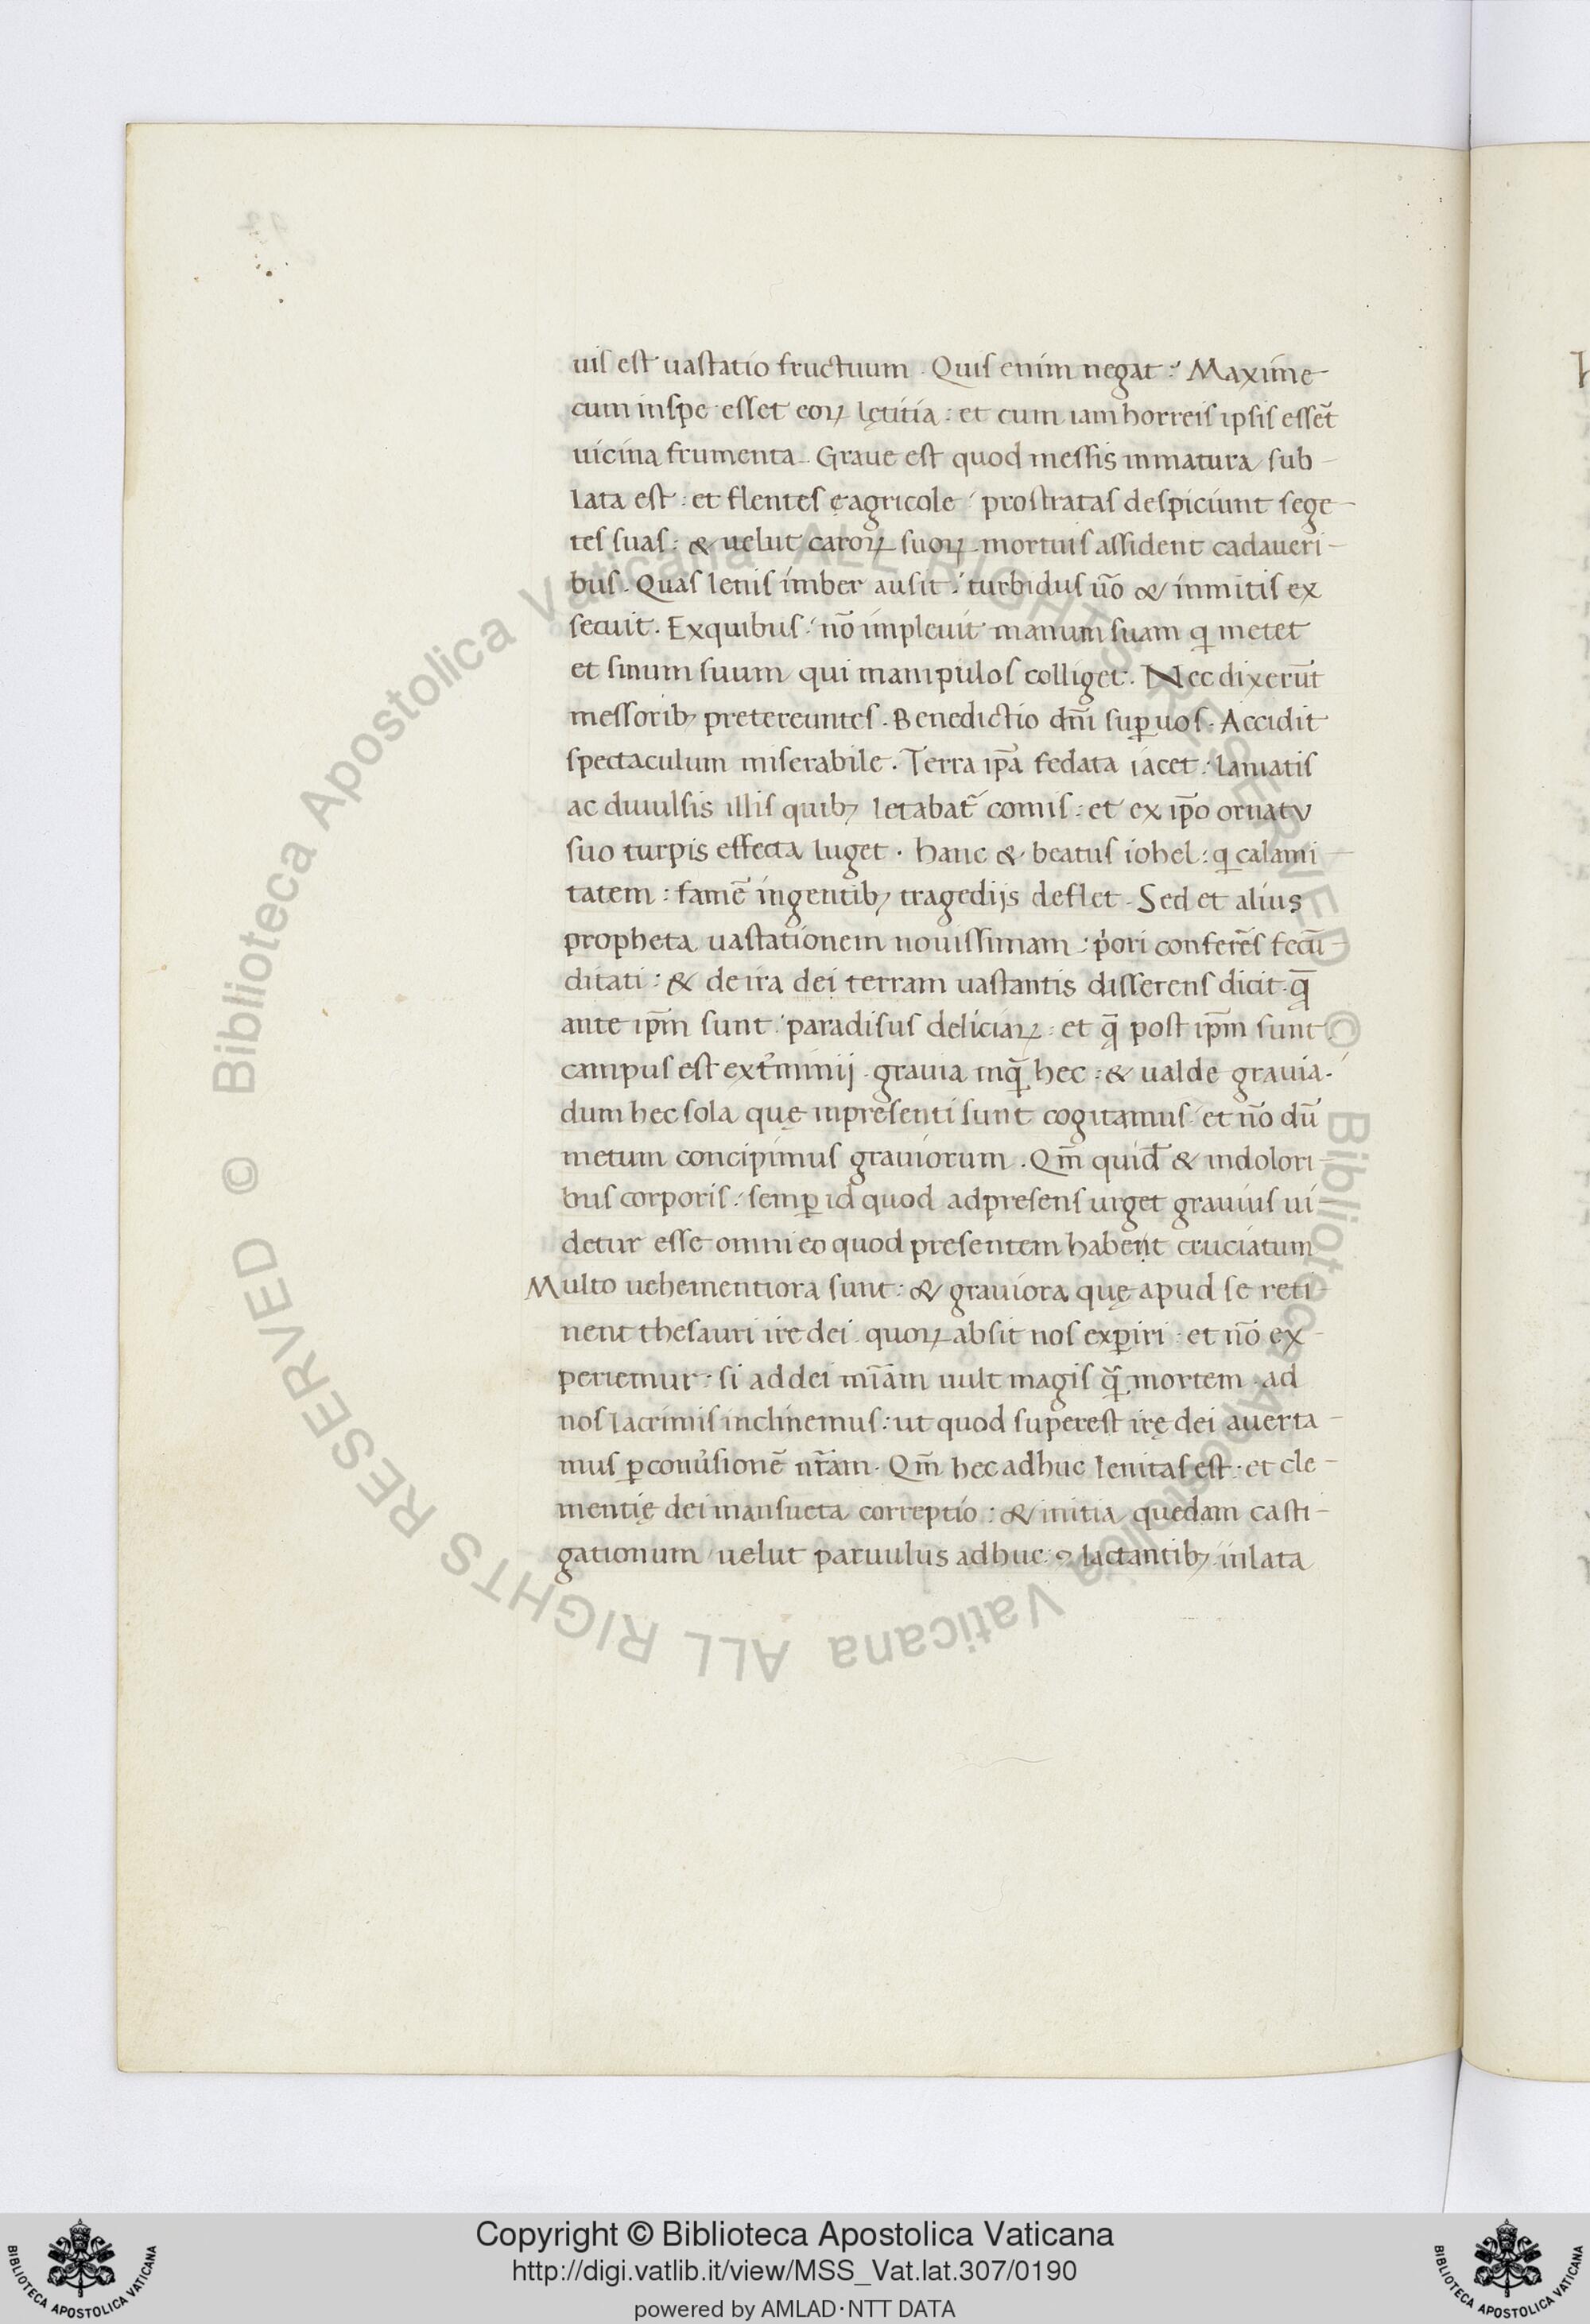 uis est uastatio fructuum. Quis enim negat: Maxime
cum inspe esset eoꝝ lętitia: et cum iam horreis ipsis esset̄
uicina frumenta. Graue est quod messis inmatura sub-
lata est: et flentes ęagricole prostratas despiciunt sege-
tes suas: & uelut caroꝝ suoꝝ mortuis assident cadaueri-
bus. Quas lenis imber ausit: turbidus ūo & inmitis ex
secuit. Exquibus: nō impleuit manum suam q̣ metet
et sinum suum qui manipulos colliget. Nec dixerūt
messorib; pretereuntes. Benedictio dn̄i suꝑ uos. Accidit
spectaculum miserabile. Terra ip̄a fedata iacet: laniatis
ac diuulsis illis quib; letabat̄ comis: et ex ip̄o ornatu
suo turpis effecta luget. hanc & beatus iohel: q calami-
tatem: famē ingentib; tragedijs deflet. Sed et alius
propheta uastationem nouissimam: p'ori conferēs fecū-
ditati: & de ira dei terram uastantis disserens dicit. q̄
ante ip̄m sunt: paradisus deliciaꝝ: et q̄ post ip̄m sunt
campus est ext̄minij. grauia inq̄ hec: & ualde grauia.
dum hec sola quę inpresenti sunt cogitamus: et nō dū
metum concipimus grauiorum. Qm̄ quid̄ & indolori-
bus corporis: semꝑ id quod adpresens urget grauius ui
detur esse omni eo quod presentem habent cruciatum
Multo uehementiora sunt: & grauiora quę apud se reti-
nent thesauri ire dei. quoꝝ absit nos exꝑiri: et nō ex-
periemur: si ad dei mīam uult magis q̄ mortem. ad
nos lacrimis inclinemus: ut quod superest irę dei auerta-
mus ꝑ conu̓sionē nr̄am. Qm̄ hec adhuc lenitas est: et cle-
mentię dei mansueta correptio: & initia quedam casti-
gationum uelut paruulus adhuc: & lactantib; inlata
Copyright © Biblioteca Apostolica Vaticana
http://digi.vatlib.it/view/MSS_Vat.lat.307/0190
powered by AMLAD·NTT DATA
© Biblioteca Apostolica Vaticana ALL RIGHTS RESERVED
© Biblioteca Apostolica Vaticana ALL RIGHTS RESERVED
BIBLIOTECA APOSTOLICA VATICANA
BIBLIOTECA APOSTOLICA VATICANA